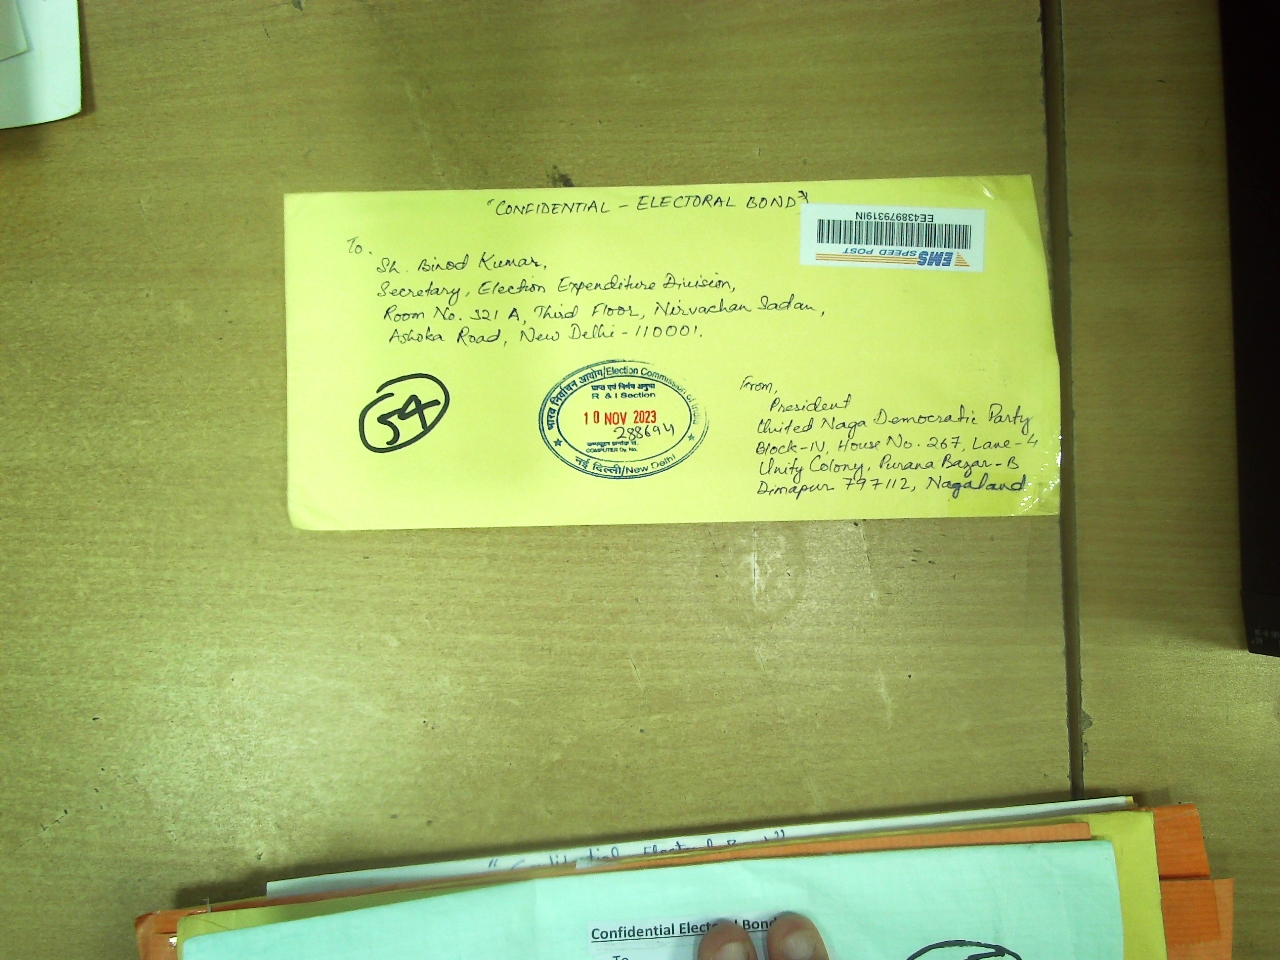 "CONFIDENTIAL - ELECTORAL BOND"
EE438979319IN
EMS SPEED POST
To.
Sh. Binod Kumar,
Secretary, Election Expenditure Division,
Room No. 321 A, Third Floor, Nirvachan Sadan,
Ashoka Road, New Delhi - 110001.
54
भारत निर्वाचन आयोग/Election Commission of India
प्राप्त एवं निर्गम अनुभाग
R & I Section
10 NOV 2023
288694
COMPUTER Dy. No.
नई दिल्ली/New Delhi
From,
President
United Naga Democratic Party
Block-IV, House No. 267, Lane-4
Unity Colony, Purana Bazar-B
Dimapur 797112, Nagaland
"Confidential - Electoral Bond"
Confidential Electoral Bond
To